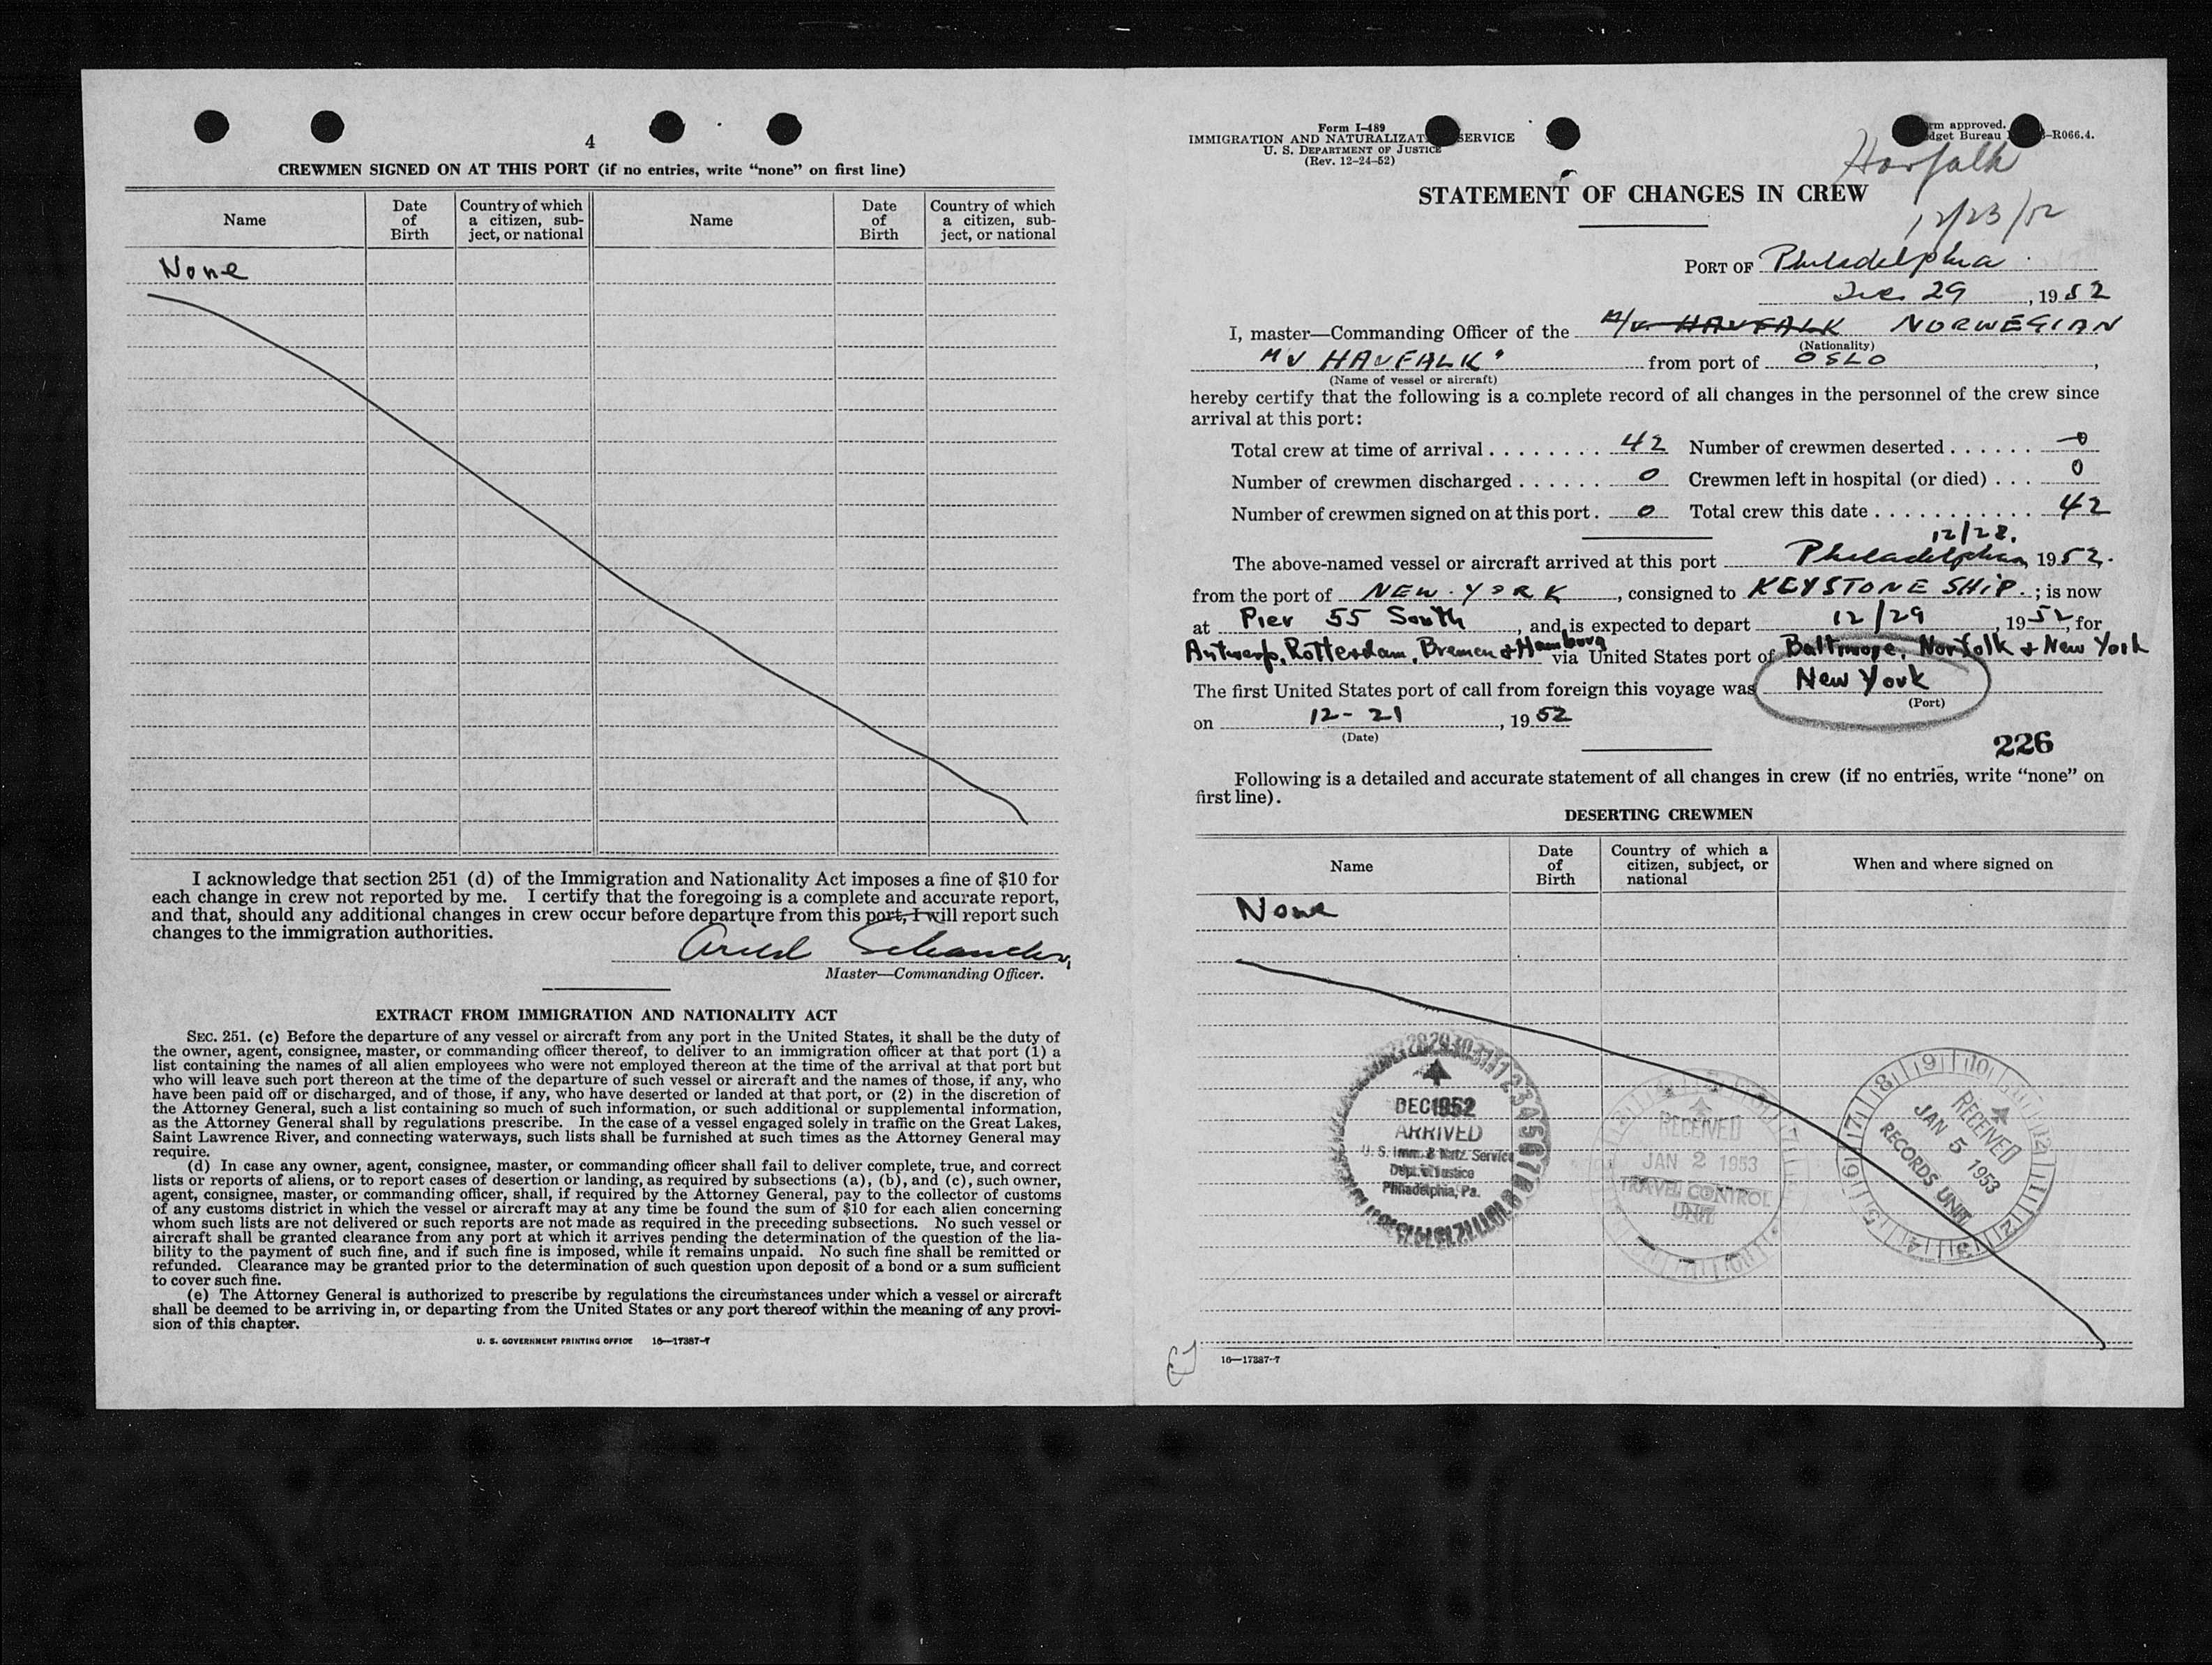 4
CREWMEN SIGNED ON AT THIS PORT (if no entries, write "none" on first line)
Name
Date of Birth
Country of which a citizen, sub-ject, or national
Name
Date of Birth
Country of which a citizen, sub-ject, or national
None
I acknowledge that section 251 (d) of the Immigration and Nationality Act imposes a fine of $10 for
each change in crew not reported by me. I certify that the foregoing is a complete and accurate report,
and that, should any additional changes in crew occur before departure from this port, I will report such
changes to the immigration authorities.
Master—Commanding Officer.
EXTRACT FROM IMMIGRATION AND NATIONALITY ACT
SEC. 251. (c) Before the departure of any vessel or aircraft from any port in the United States, it shall be the duty of
the owner, agent, consignee, master, or commanding officer thereof, to deliver to an immigration officer at that port (1) a
list containing the names of all alien employees who were not employed thereon at the time of the arrival at that port but
who will leave such port thereon at the time of the departure of such vessel or aircraft and the names of those, if any, who
have been paid off or discharged, and of those, if any, who have deserted or landed at that port, or (2) in the discretion of
the Attorney General, such a list containing so much of such information, or such additional or supplemental information,
as the Attorney General shall by regulations prescribe. In the case of a vessel engaged solely in traffic on the Great Lakes,
Saint Lawrence River, and connecting waterways, such lists shall be furnished at such times as the Attorney General may
require.
(d) In case any owner, agent, consignee, master, or commanding officer shall fail to deliver complete, true, and correct
lists or reports of aliens, or to report cases of desertion or landing, as required by subsections (a), (b), and (c), such owner,
agent, consignee, master, or commanding officer, shall, if required by the Attorney General, pay to the collector of customs
of any customs district in which the vessel or aircraft may at any time be found the sum of $10 for each alien concerning
whom such lists are not delivered or such reports are not made as required in the preceding subsections. No such vessel or
aircraft shall be granted clearance from any port at which it arrives pending the determination of the question of the lia-
bility to the payment of such fine, and if such fine is imposed, while it remains unpaid. No such fine shall be remitted or
refunded. Clearance may be granted prior to the determination of such question upon deposit of a bond or a sum sufficient
to cover such fine.
(e) The Attorney General is authorized to prescribe by regulations the circumstances under which a vessel or aircraft
shall be deemed to be arriving in, or departing from the United States or any port thereof within the meaning of any provi-
sion of this chapter.
U. S. GOVERNMENT PRINTING OFFICE 16—17387-7
Form I-489
IMMIGRATION AND NATURALIZAT SERVICE
U. S. DEPARTMENT OF JUSTICE
(Rev. 12-24-52)
rm approved.
dget Bureau -R066.4.
Norfolk
12/23/52
STATEMENT OF CHANGES IN CREW
PORT OF Philadelphia
Dec 29, 1952
I, master—Commanding Officer of the M/V HAVFALK NORWEGIAN
(Nationality)
"MV HAVFALK" from port of OSLO,
(Name of vessel or aircraft)
hereby certify that the following is a complete record of all changes in the personnel of the crew since
arrival at this port:
Total crew at time of arrival . . . . . . . . 42 Number of crewmen deserted . . . . . . 0
Number of crewmen discharged . . . . . . 0 Crewmen left in hospital (or died) . . . 0
Number of crewmen signed on at this port . 0 Total crew this date . . . . . . . . . . . . 42
12/28.
The above-named vessel or aircraft arrived at this port Philadelphia, 1952.
from the port of NEW YORK, consigned to KEYSTONE SHIP.; is now
at Pier 55 South, and is expected to depart 12/29, 1952, for
Antwerp, Rotterdam, Bremen & Hamburg via United States port of Baltimore, Norfolk & New York
The first United States port of call from foreign this voyage was New York
(Port)
on 12-21, 1952
(Date)
226
Following is a detailed and accurate statement of all changes in crew (if no entries, write "none" on
first line).
DESERTING CREWMEN
Name
Date of Birth
Country of which a citizen, subject, or national
When and where signed on
None
DEC 1952
ARRIVED
U. S. Imm. & Natz. Service
Dept. of Justice
Philadelphia, Pa.
RECEIVED
JAN 2 1953
TRAVEL CONTROL
UNIT
RECEIVED
JAN 5 1953
RECORDS UNIT
16—17387-7